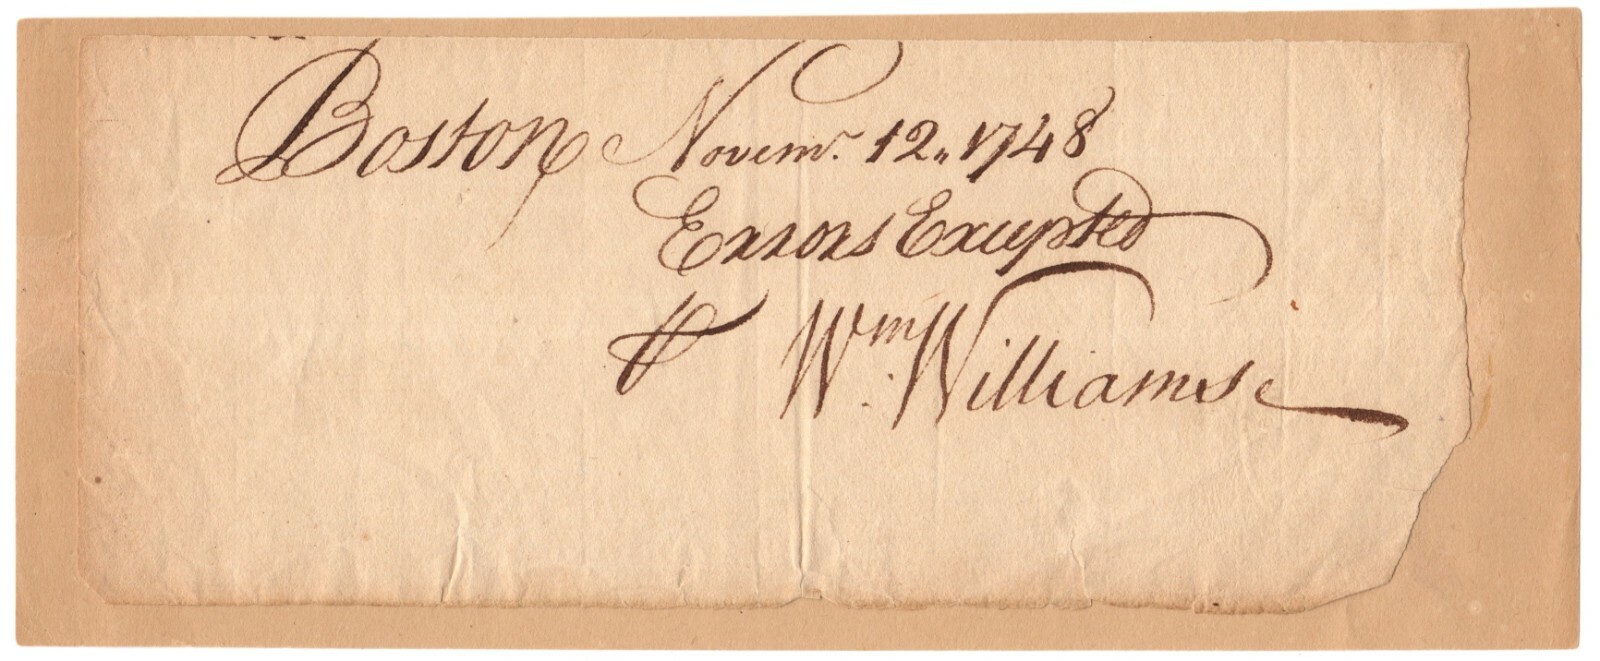 Boston Novemr. 12,, 1748
Errors Excepted
⅌ Wm. Williams